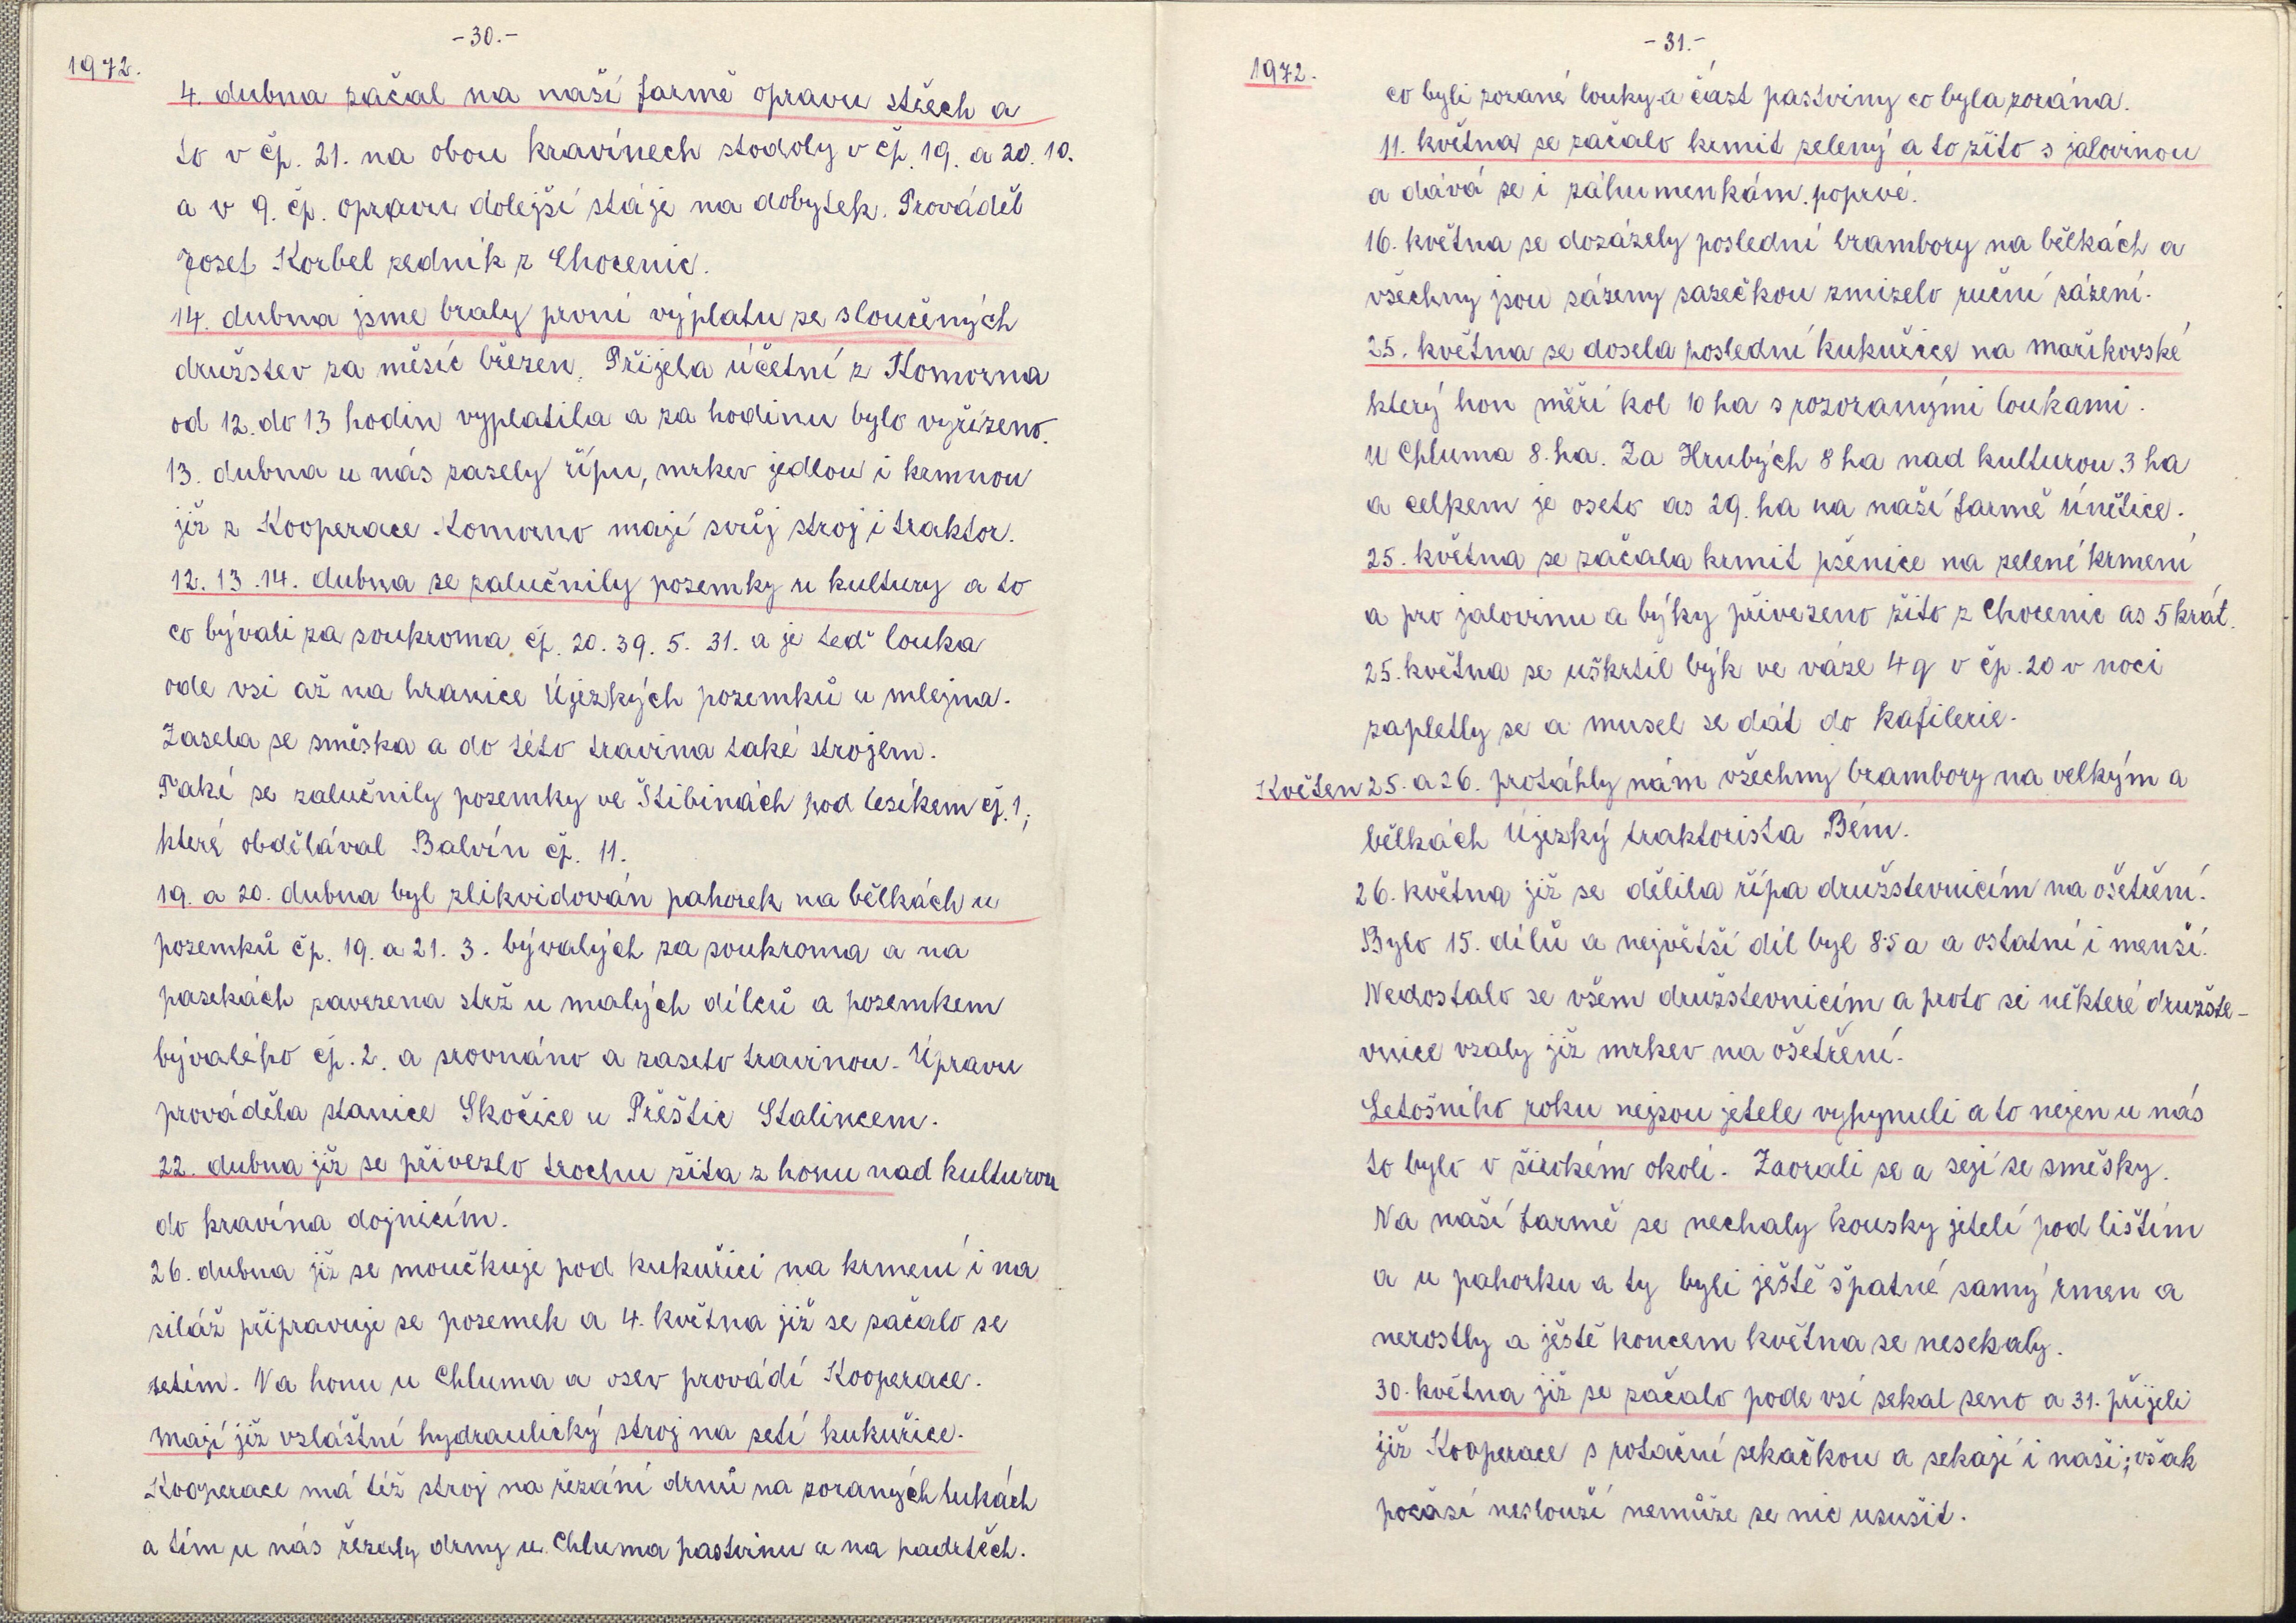 -30.-
1972.
4. dubna začal na naší farmě opravu střech a
to v čp. 21. na obou kravínech stodoly v čp. 19. a 20. 10.
a v 9. čp. opravu dolejší stáje na dobytek. Prováděl
Josef Korbel zedník z Chocenic.
14. dubna jsme braly první výplatu ze sloučených
družstev za měsíc březen. Přijela účetní z Komorna
od 12. do 13 hodin vyplatila a za hodinu bylo vyřízeno.
13. dubna u nás zasely řípu, mrkev jedlou i krmnou
již z Kooperace Komorno mají svůj stroj i traktor.
12. 13. 14. dubna se zalučnily pozemky u kultury a to
co bývali za soukroma čp. 20. 39. 5. 31. a je teď louka
ode vsi až na hranice Újezkých pozemků u mlejna.
Zasela se směska a do této travina také strojem.
Také se zalučnily pozemky ve Štibinách pod lesíkem čp. 1,
které obdělával Balvín čp. 11.
19. a 20. dubna byl zlikvidován pahorek na bělkách u
pozemků čp. 19. a 21. 3. bývalých za soukroma a na
pasekách zavezena strž u malých dílců a pozemkem
bývalého čp. 2. a srovnáno a zaseto travinou. Úpravu
prováděla stanice Skočice u Přeštic Stalincem.
22. dubna již se přivezlo trochu žita z honu nad kulturou
do kravína dojnicím.
26. dubna již se moučkuje pod kukuřici na krmení i na
siláž připravuje se pozemek a 4. května již se začalo se
setím. Na honu u Chluma a osev provádí Kooperace.
mají již vzláštní hydraulický stroj na setí kukuřice.
Kooperace má též stroj na řezání drnů na zoraných lukách
a tím u nás řezaly drny u Chluma pastvinu a na padrtěch.
-31.-
1972.
co byli zorané louky a část pastviny co byla zorána.
11. května se začalo krmit zelený a to žito s jalovinou
a dává se i záhumenkám poprvé.
16. května se dozázely poslední brambory na bělkách a
všechny jsou sázeny sazečkou zmizelo ruční sázení.
25. května se dosela poslední kukuřice na maříkovské
který hon měří kol 10 ha s rozoranými loukami.
U Chluma 8. ha. Za Hrubých 8 ha nad kulturou 3 ha
a celkem je oseto as 29. ha na naší farmě Únětice.
25. května se začala krmit pšenice na zelené krmení
a pro jalovinu a býky přivezeno žito z Chocenic as 5 krát.
25. května se uškrtil býk ve váze 4 q v čp. 20 v noci
zapletly se a musel se dát do kafilerie.
Květen 25. a 26. protáhly nám všechny brambory na velkým a
bělkách Újezký traktorista Bém.
26. května již se dělila řípa družstevnicím na ošetření.
Bylo 15. dílů a největší díl byl 8.5 a a ostatní i menší.
Nedostalo se všem družstevnicím a proto si některé družste-
vnice vzaly již mrkev na ošetření.
Letošního roku nejsou jetele vyhynuli a to nejen u nás
to bylo v širokém okolí. Zaorali se a sejí se směsky.
Na naší farmě se nechaly kousky jetelí pod lištím
a u pahorku a ty byli ještě špatné samý rmen a
nerostly a ještě koncem května se nesekaly.
30. května již se začalo pode vsí sekat seno a 31. přijeli
již Kooperace s rotační sekačkou a sekají i naši; však
počasí neslouží nemůže se nic ususit.